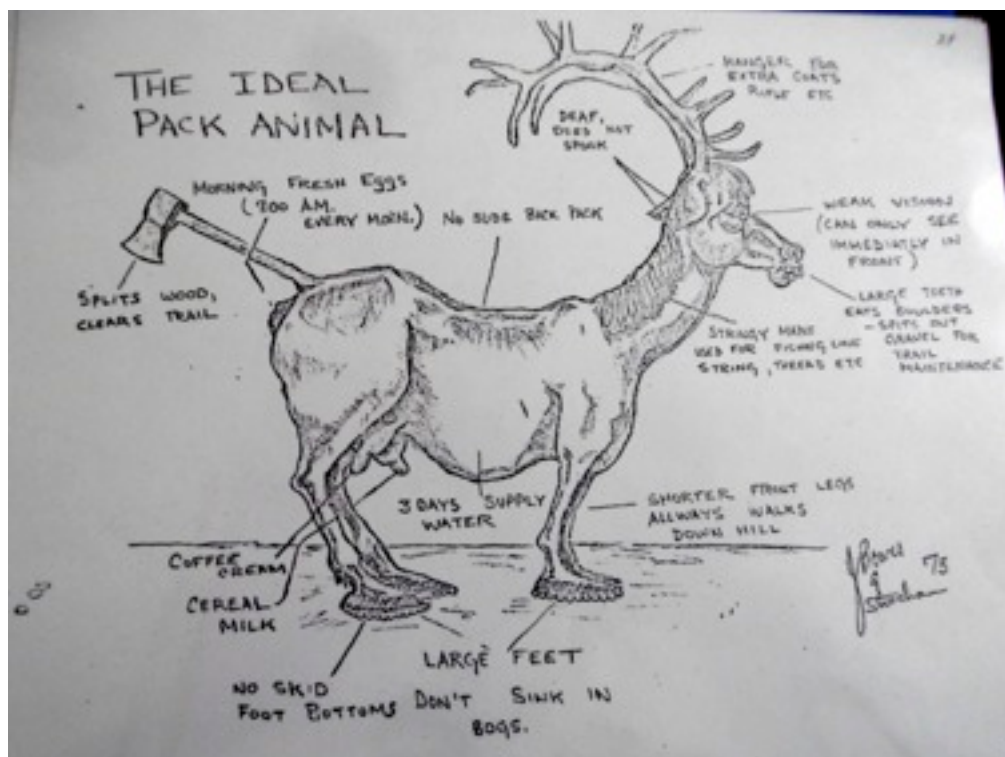 THE IDEAL
PACK ANIMAL
HANGER FOR
EXTRA COATS
RIFLE ETC
DEAF,
DOES NOT
SPOOK
MORNING FRESH EGGS
(700 A.M.
EVERY MORN.)
NO SLIDE BACK PACK
WEAK VISION
(CAN ONLY SEE
IMMEDIATLY IN
FRONT)
SPLITS WOOD,
CLEARS TRAIL
LARGE TEETH
EATS BOULDERS
- SPITS OUT
GRAVEL FOR
TRAIL
MAINTENANCE
STRINGY MANE
USED FOR FISHING LINE
STRING, THREAD ETC
3 DAYS SUPPLY
WATER
SHORTER FRONT LEGS
ALLWAYS WALKS
DOWN HILL
COFFEE
CREAM
CEREAL
MILK
LARGE FEET
DON'T SINK IN
BOGS.
NO SKID
FOOT BOTTOMS